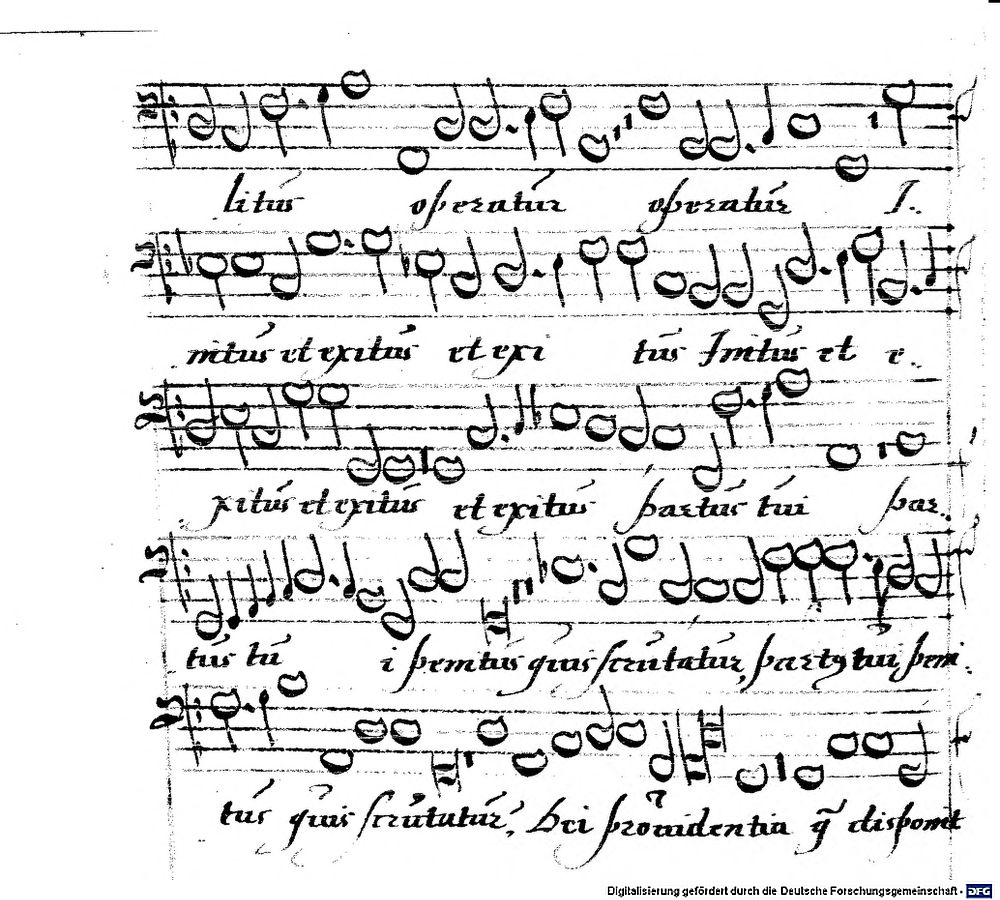 litus operatur operatur I.
nitus et exitus et exi tus Initus et e.
xitus et exitus et exitus partus tui par.
tus tu i penitus quis scrutatur, partus tui, peni.
tus quis scrutatur? Dei providentia q̃ disponit
Digitalisierung gefördert durch die Deutsche Forschungsgemeinschaft - DFG